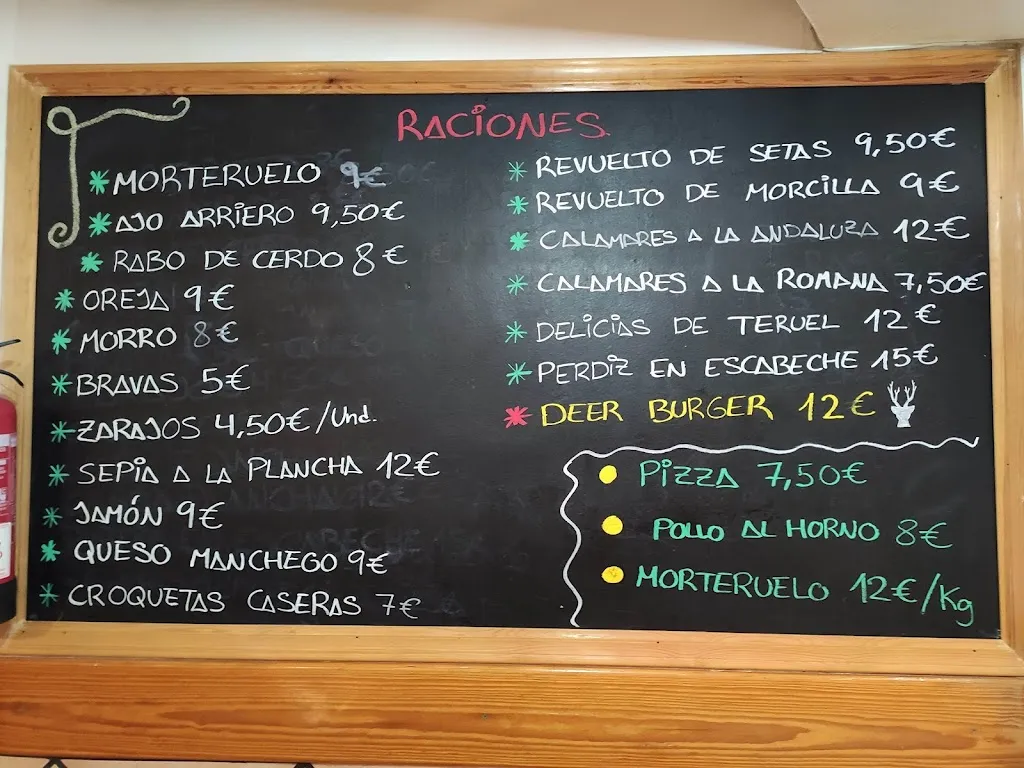 RACIONES
MORTERUELO 9€
AJO ARRIERO 9,50€
RABO DE CERDO 8€
OREJA 9€
MORRO 8€
BRAVAS 5€
ZARAJOS 4,50€/Und.
SEPIA A LA PLANCHA 12€
JAMÓN 9€
QUESO MANCHEGO 9€
CROQUETAS CASERAS 7€
REVUELTO DE SETAS 9,50€
REVUELTO DE MORCILLA 9€
CALAMARES A LA ANDALUZA 12€
CALAMARES A LA ROMANA 7,50€
DELICIAS DE TERUEL 12€
PERDIZ EN ESCABECHE 15€
DEER BURGER 12€
PIZZA 7,50€
POLLO AL HORNO 8€
MORTERUELO 12€/Kg